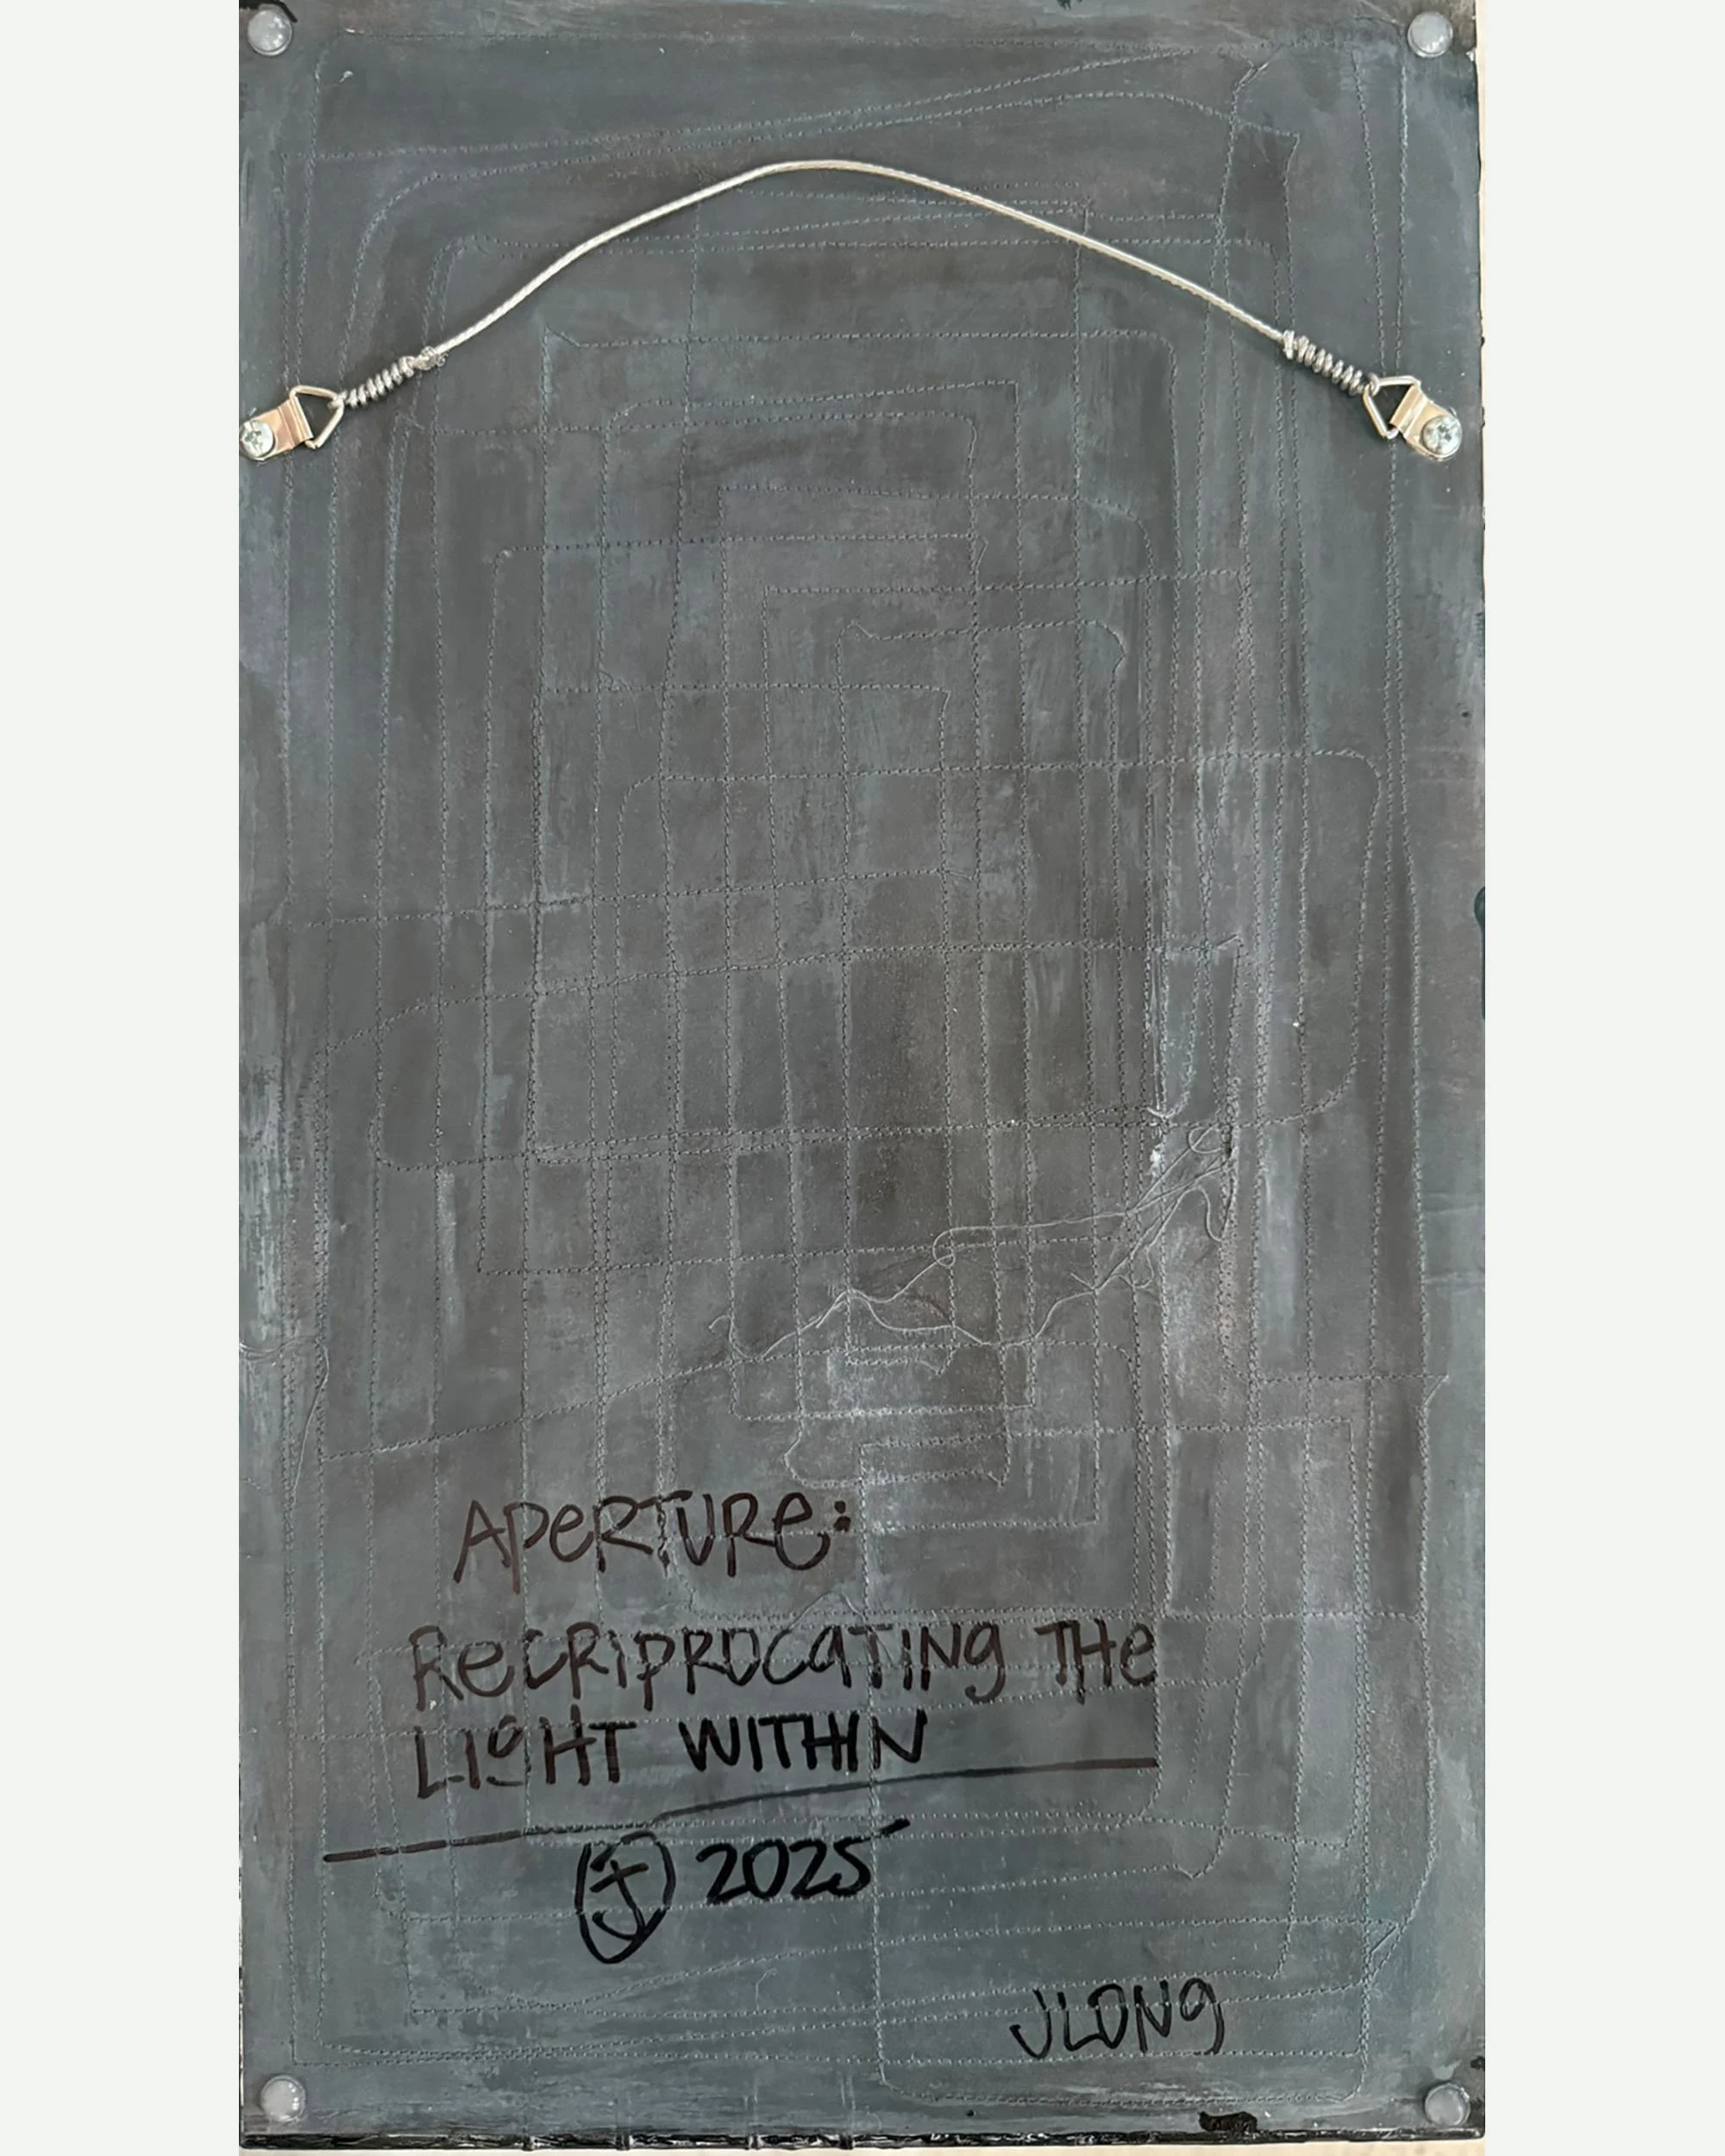 APeRTURe:
ReCRiPROCaTING THe
LIGHT WITHIN
2025
JLONG